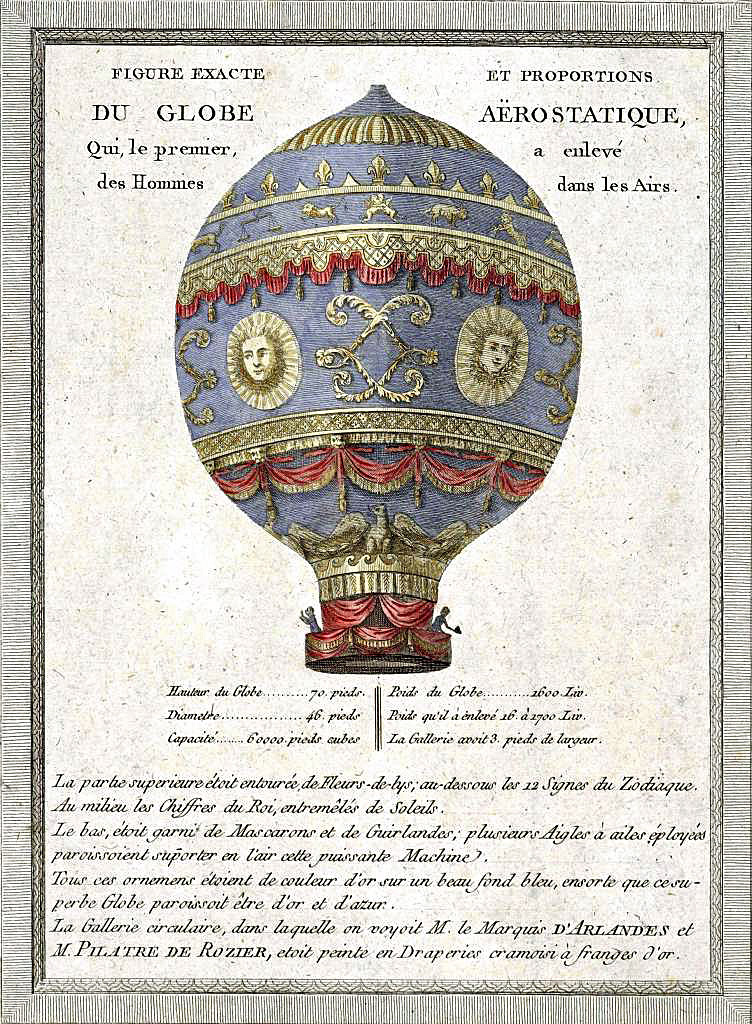 FIGURE EXACTE ET PROPORTIONS
DU GLOBE AËROSTATIQUE,
Qui, le premier, a enlevé
des Hommes dans les Airs.
Hauteur du Globe..........70. pieds. Poids du Globe...........1600. Liv.
Diametre.................46. pieds Poids qu'il à énlevé 16. à 1700 Liv.
Capacité........60000. pieds cubes La Gallerie avoit 3. pieds de largeur.
La partie superieure étoit entourée, de Fleurs-de-lys; au-dessous les 12 Signes du Zodiaque.
Au milieu les Chiffres du Roi, entremêlés de Soleils.
Le bas, étoit garni de Mascarons et de Guirlandes; plusieurs Aigles à ailes éployées
paroissoient suporter en l'air cette puissante Machine.
Tous ces ornemens étoient de couleur d'or sur un beau fond bleu, ensorte que ce su-
perbe Globe paroissoit être d'or et d'azur.
La Gallerie circulaire, dans laquelle on voyoit M. le Marquis D'ARLANDES et
M. PILATRE DE ROZIER, etoit peinte en Draperies cramoisi à franges d'or.